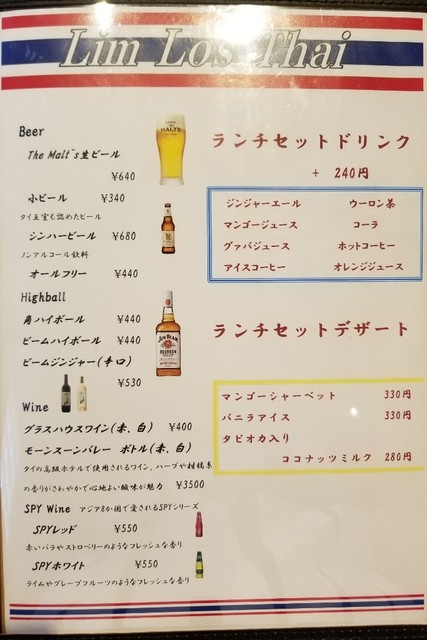 Lim Los Thai
Beer
The Malt's生ビール
¥640
小ビール ¥340
タイ王室も認めたビール
シンハービール ¥680
ノンアルコール飲料
オールフリー ¥440
Highball
角ハイボール ¥440
ビームハイボール ¥440
ビームジンジャー(辛口)
¥530
Wine
グラスハウスワイン(赤、白) ¥400
モーンスーンバレー ボトル(赤、白)
タイの高級ホテルで使用されるワイン。ハーブや柑橘系
の香りがさわやかで心地よい酸味が魅力 ¥3500
SPY Wine アジア8か国で愛されるSPYシリーズ
SPYレッド ¥550
赤いバラやストロベリーのようなフレッシュな香り
SPYホワイト ¥550
ライムやグレープフルーツのようなフレッシュな香り
ランチセットドリンク
+ 240円
ジンジャーエール ウーロン茶
マンゴージュース コーラ
グァバジュース ホットコーヒー
アイスコーヒー オレンジジュース
ランチセットデザート
マンゴーシャーベット 330円
バニラアイス 330円
タピオカ入り
ココナッツミルク 280円
MALT'S
JIM BEAM
BOURBON